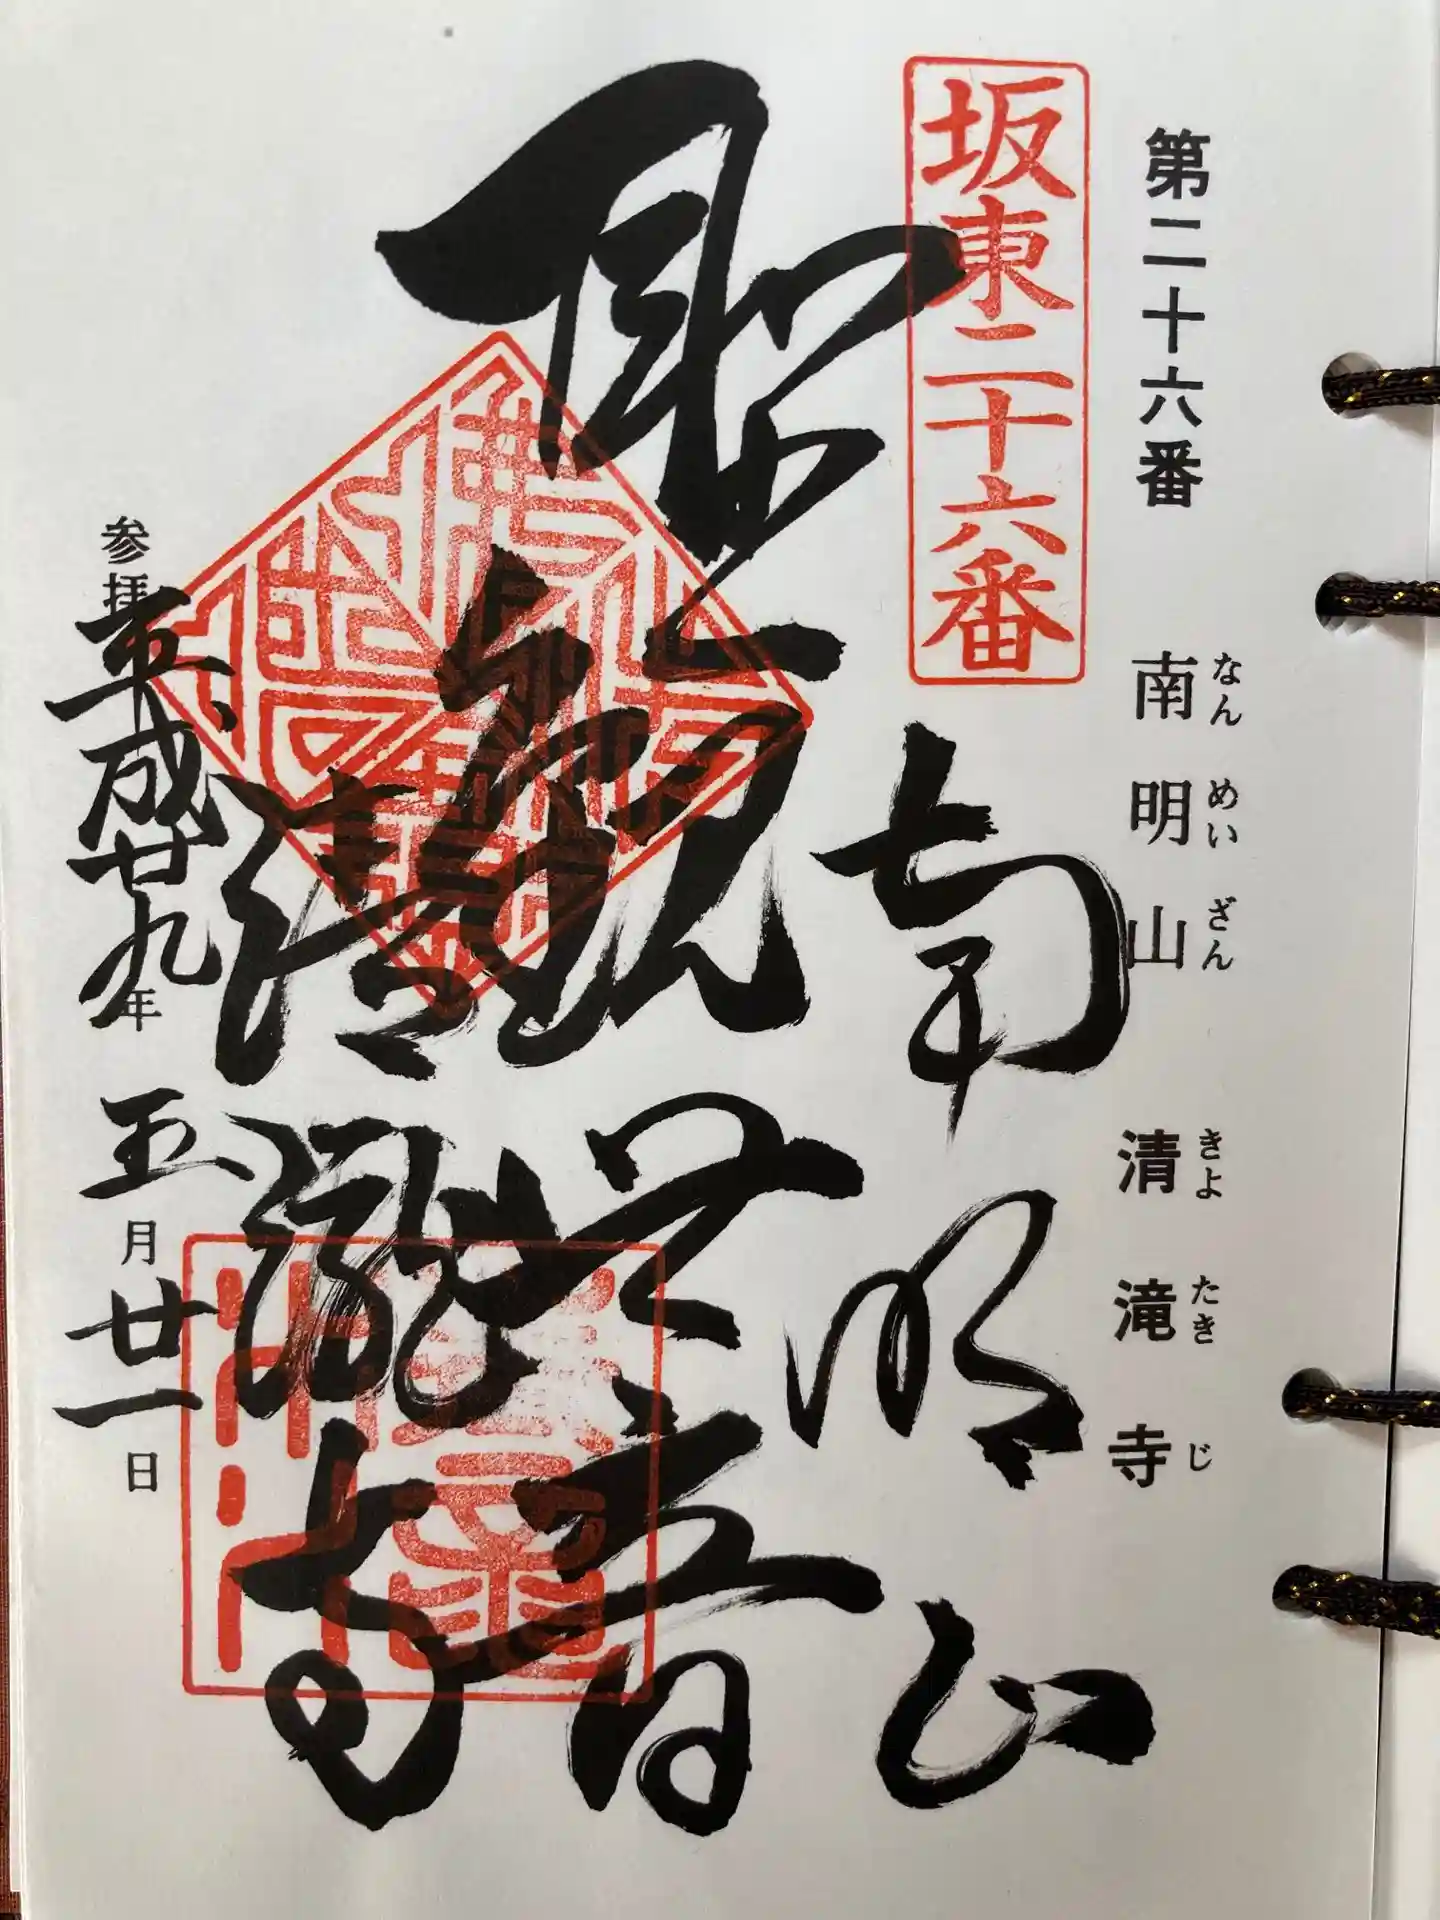 第二十六番 南明山 清滝寺
なんめいざん きよたきじ
坂東二十六番
南明山
聖観世音
清瀧寺
参拝平成廿九年五月廿一日